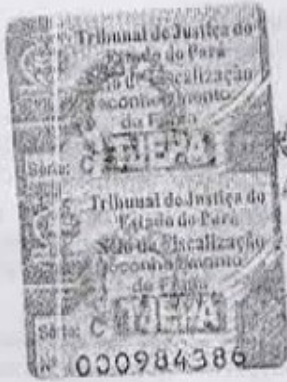 Tribunal de Justiça do
Estado do Pará
Selo de Fiscalização
Reconhecimento
de Firma
Série: C TJEPA
Tribunal de Justiça do
Estado do Pará
Selo de Fiscalização
Reconhecimento
de Firma
Série: C TJEPA
Nº 000984386